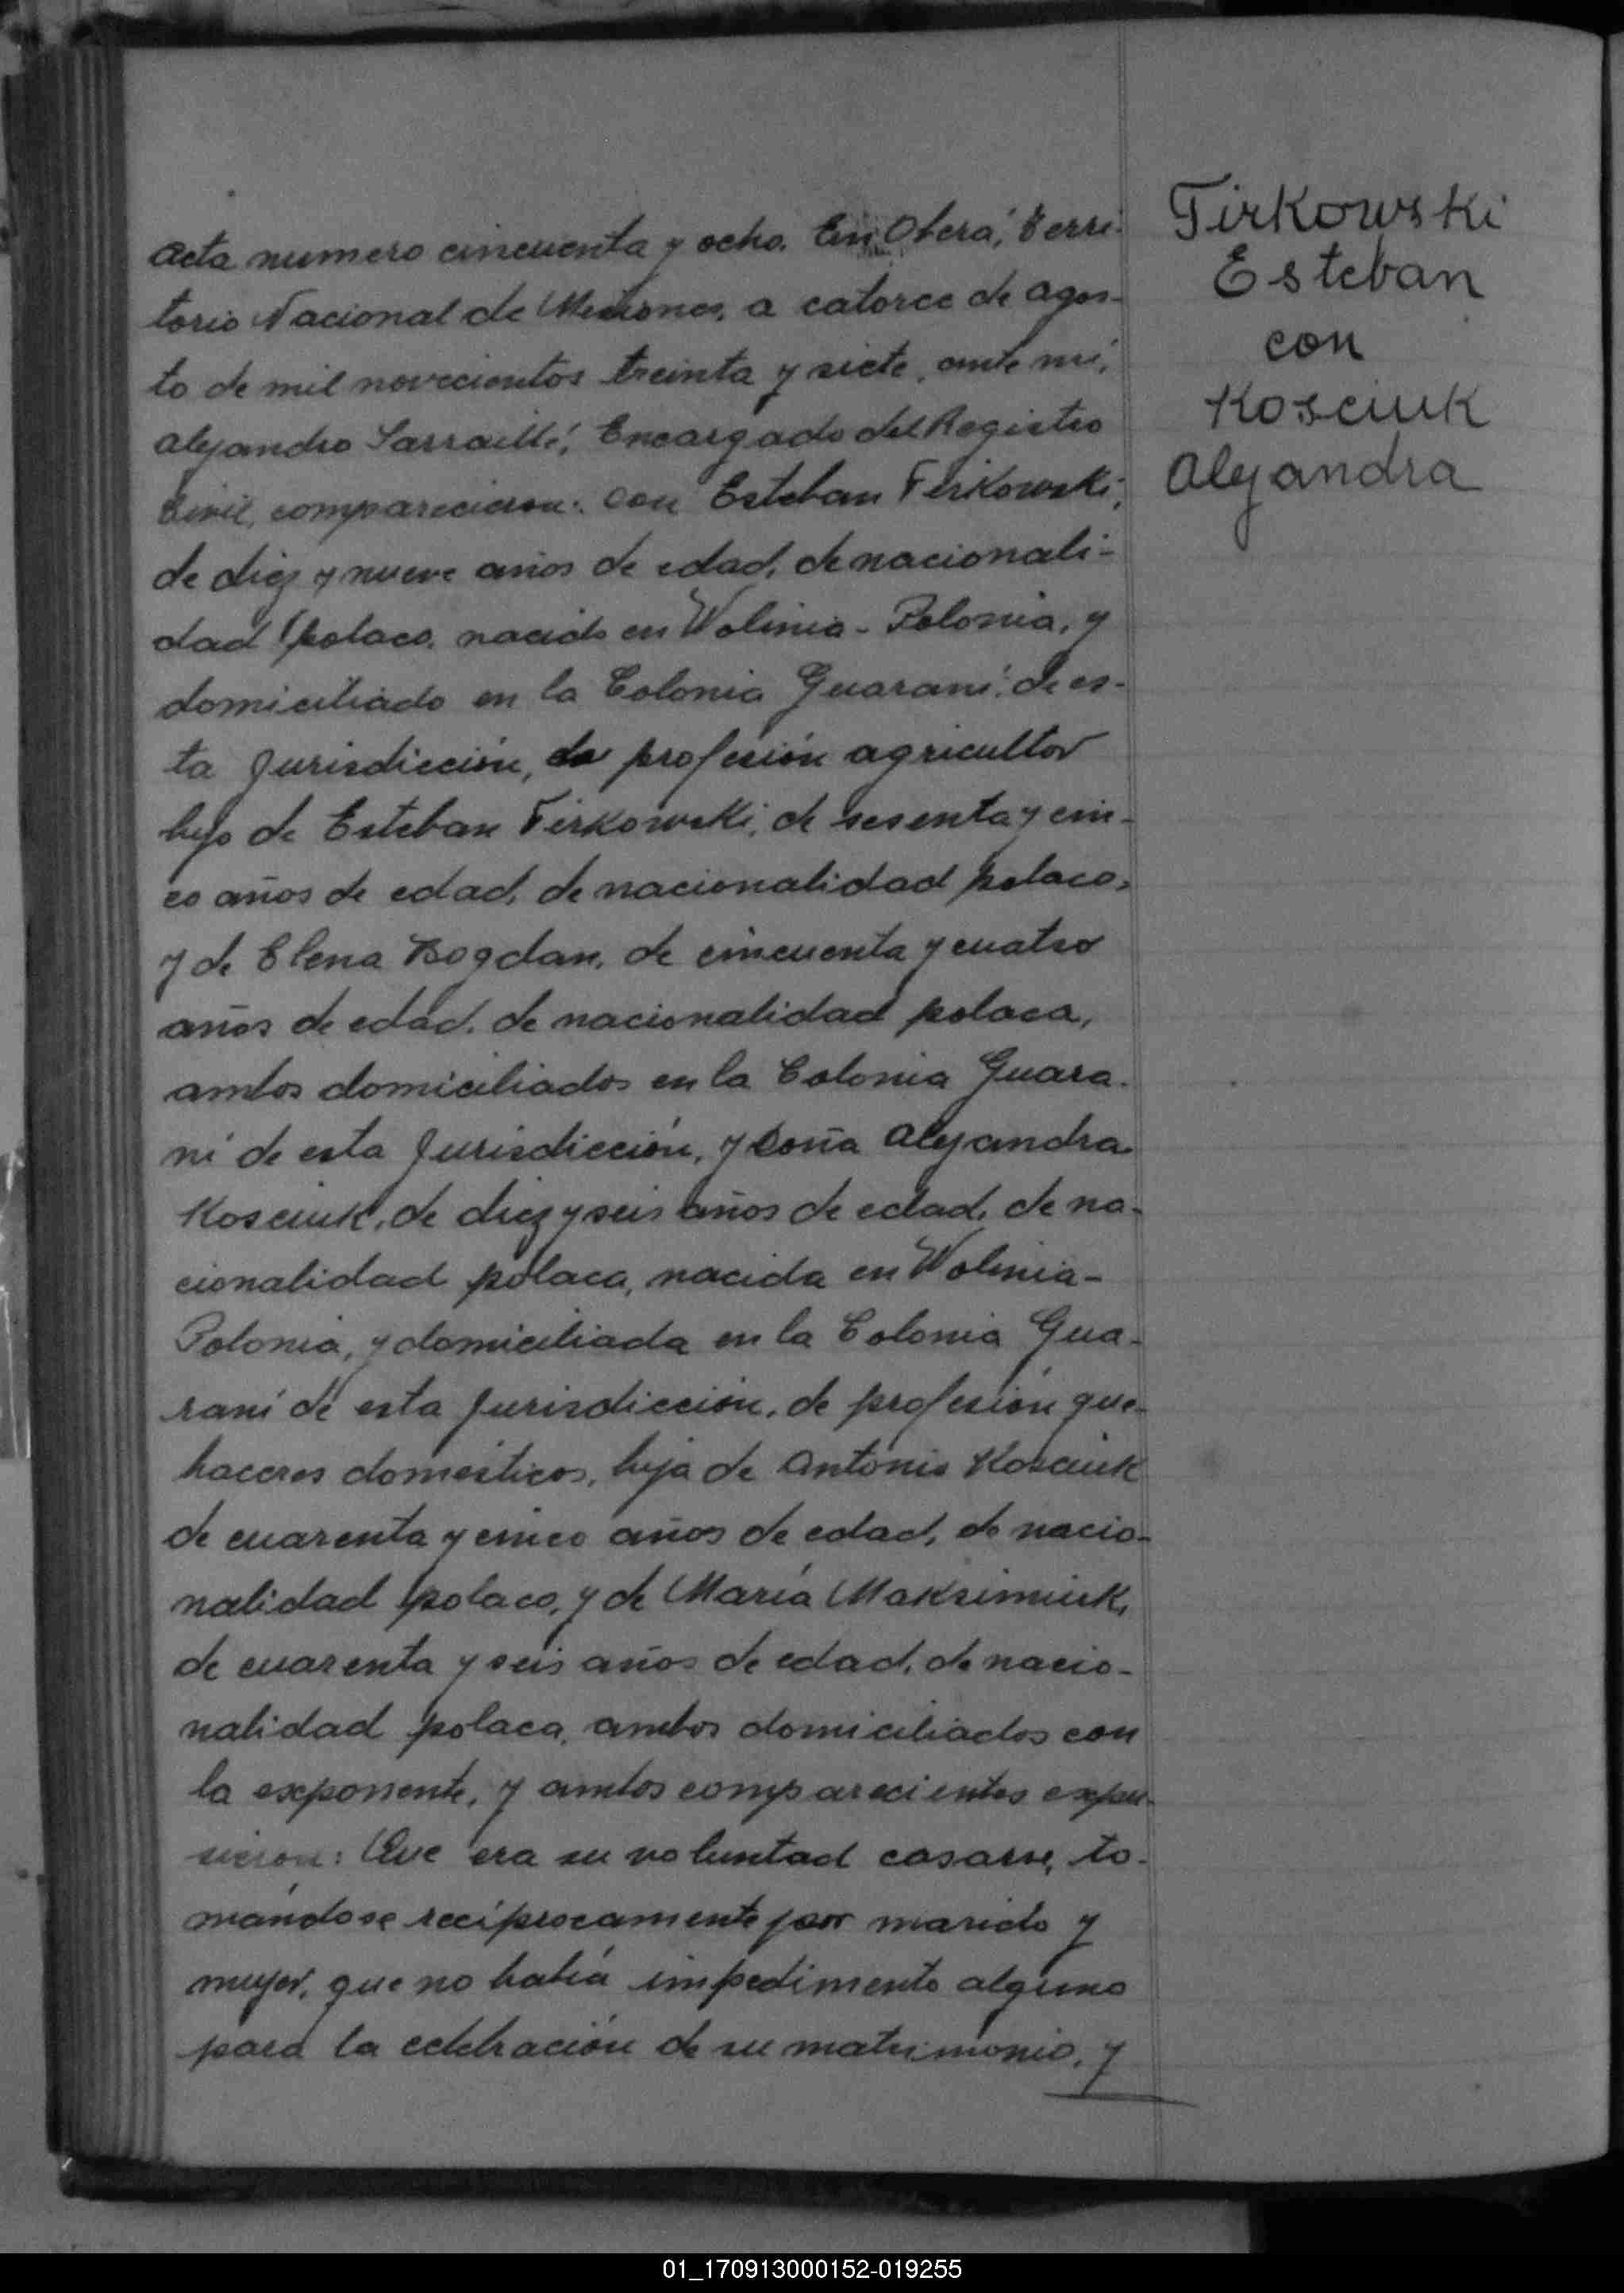 Acta numero cincuenta y ocho. En Oberá, Terri-
torio Nacional de Misiones, a catorce de agos-
to de mil novecientos treinta y siete, ante mí,
Alejandro Sarraillé, Encargado del Registro
Civil, comparecieron: Don Esteban Firkowski,
de diez y nueve años de edad, de nacionali-
dad polaco, nacido en Wolinia - Polonia, y
domiciliado en la Colonia Guaraní, de es-
ta Jurisdicción, de profesión agricultor
hijo de Esteban Firkowski, de sesenta y cin-
co años de edad, de nacionalidad polaco,
y de Elena Bogdan, de cincuenta y cuatro
años de edad, de nacionalidad polaca,
ambos domiciliados en la Colonia Guara-
ní de esta Jurisdicción, y Doña Alejandra
Kosciuk, de diez y seis años de edad, de na-
cionalidad polaca, nacida en Wolinia-
Polonia, y domiciliada en la Colonia Gua-
raní de esta Jurisdicción, de profesión que-
haceres domesticos, hija de Antonio Kosciuk
de cuarenta y cinco años de edad, de nacio-
nalidad polaco, y de María Maksimiuk,
de cuarenta y seis años de edad, de nacio-
nalidad polaca, ambos domiciliados con
la exponente, y ambos comparecientes expu-
sieron: Que era su voluntad casarse, to-
mándose recíprocamente por marido y
mujer, que no había impedimento alguno
para la celebración de su matrimonio, y
Firkowski
Esteban
con
Kosciuk
Alejandra
01_170913000152-019255